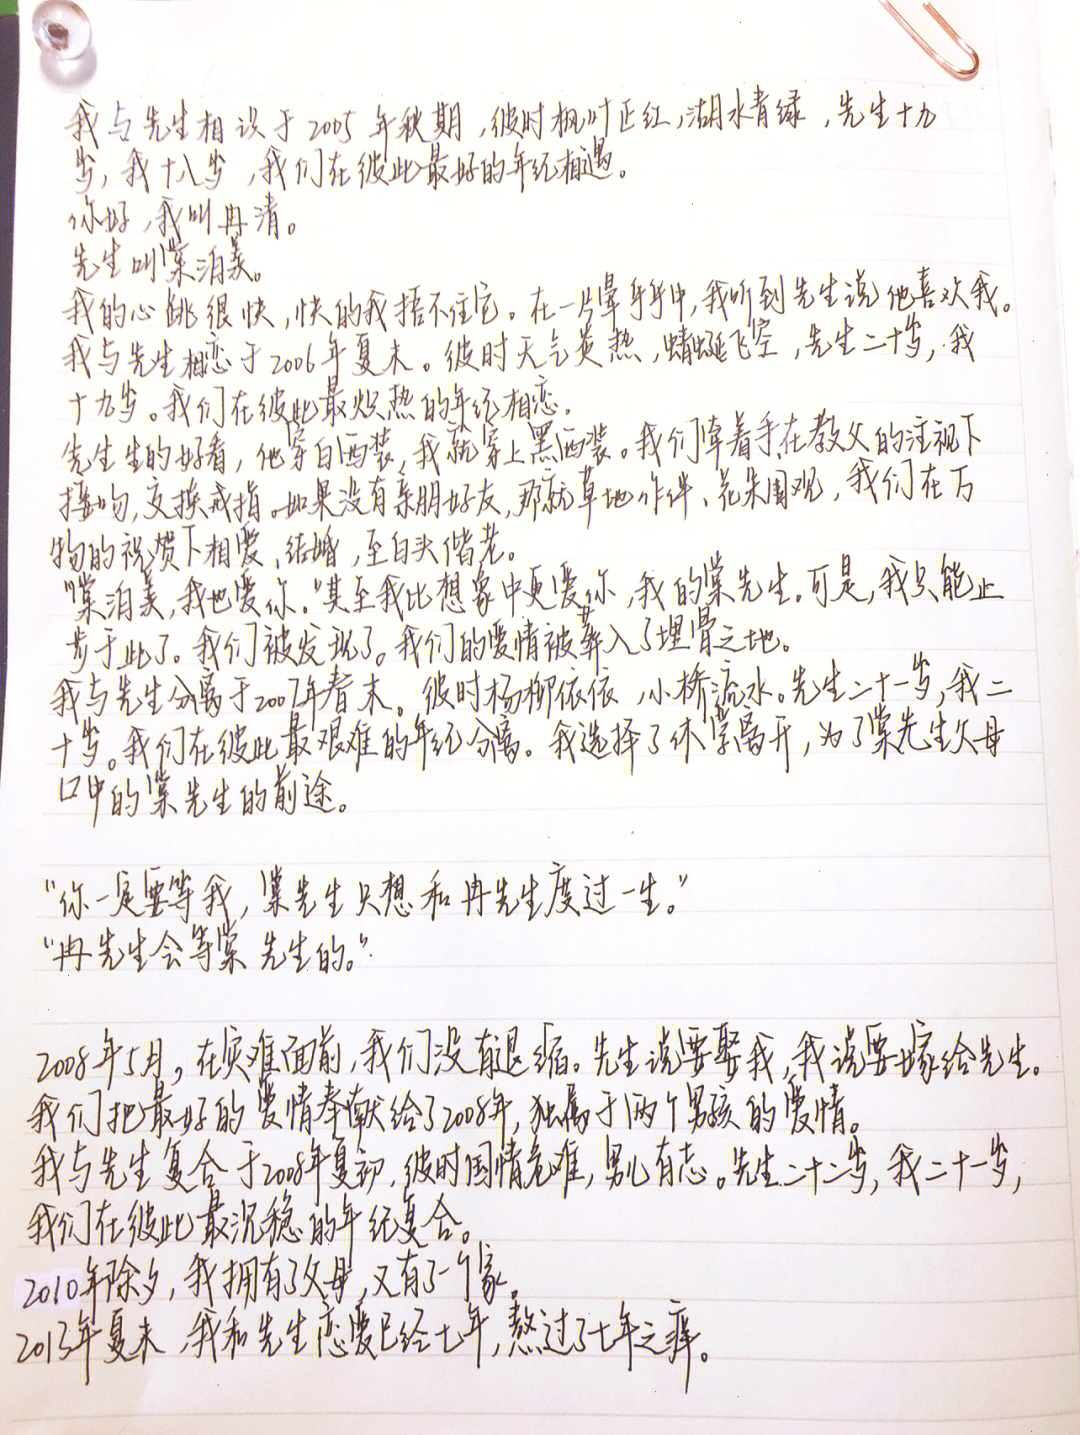 我与先生相识于2005年秋期,彼时枫叶正红,湖水青绿,先生十九
岁,我十八岁,我们在彼此最好的年纪相遇。
你好,我叫冉清。
先生叫棠洎美。
我的心跳很快,快的我捂不住它。在一片晕乎乎中,我听到先生说他喜欢我。
我与先生相恋于2006年夏末。彼时天气炎热,蜻蜓飞空,先生二十岁,我
十九岁。我们在彼此最炽热的年纪相恋。
先生生的好看,他穿白西装,我就穿上黑西装。我们牵着手在教父的注视下
接吻,交换戒指。如果没有亲朋好友,那就草地作伴、花朵围观,我们在万
物的祝贺下相爱、结婚,至白头偕老。
"棠洎美,我也爱你。"甚至我比想象中更爱你,我的棠先生。可是,我只能止
步于此了。我们被发现了。我们的爱情被葬入了埋骨之地。
我与先生分离于2007年春末。彼时杨柳依依,小桥流水。先生二十一岁,我二
十岁。我们在彼此最艰难的年纪分离。我选择了休学离开,为了棠先生父母
口中的棠先生的前途。
"你一定要等我,棠先生只想和冉先生度过一生。"
"冉先生会等棠先生的。"
2008年5月,在灾难面前,我们没有退缩。先生说要娶我,我说要嫁给先生。
我们把最好的爱情奉献给了2008年,独属于两个男孩的爱情。
我与先生复合于2008年夏初,彼时国情危难,男儿有志。先生二十二岁,我二十一岁,
我们在彼此最沉稳的年纪复合。
2010年除夕,我拥有了父母,又有了一个家。
2013年夏末,我和先生恋爱已经七年,熬过了七年之痒。